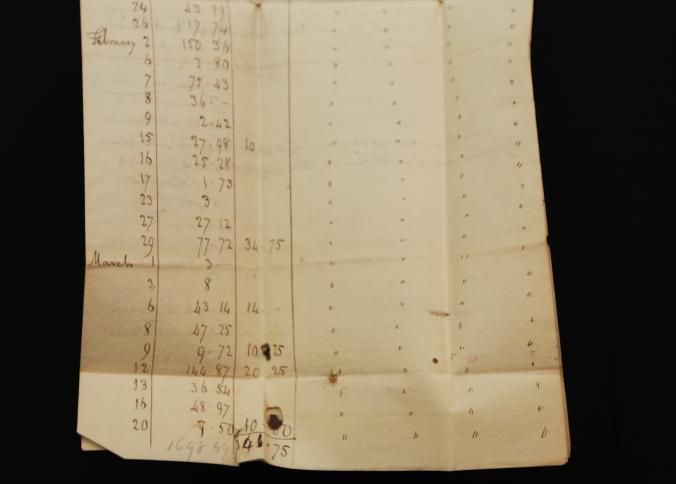 24 23 99 "
26 17 74 " " " "
February 2 150 36 " " " "
6 3 80 " " " "
7 75 43 " " " "
8 36 - " " " "
9 2.42 " " " "
15 27.98 10 " " " "
16 25.28 " " " "
17 1.73 " " " "
23 3. " " " "
27 27.12 " " " "
29 77.72 34.75 " " " "
March 1 3 " " " "
2 8 " " " "
6 43.14 14 - " " "
8 47.25 " " " "
9 9.72 10 25 " " " "
12 144.87 20 25 " " " "
13 36 54 " " " "
16 48.97 " " " "
20 .50 10 " " " "
1698 .75